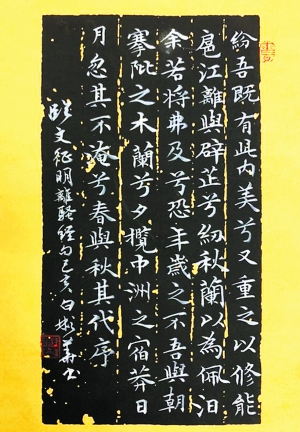 紛吾既有此内美兮又重之以修能
扈江離與辟芷兮紉秋蘭以為佩汨
余若將弗及兮恐年歲之不吾與朝
搴阰之木蘭兮夕攬中洲之宿莽日
月忽其不淹兮春與秋其代序
文征明離騷經句己亥白